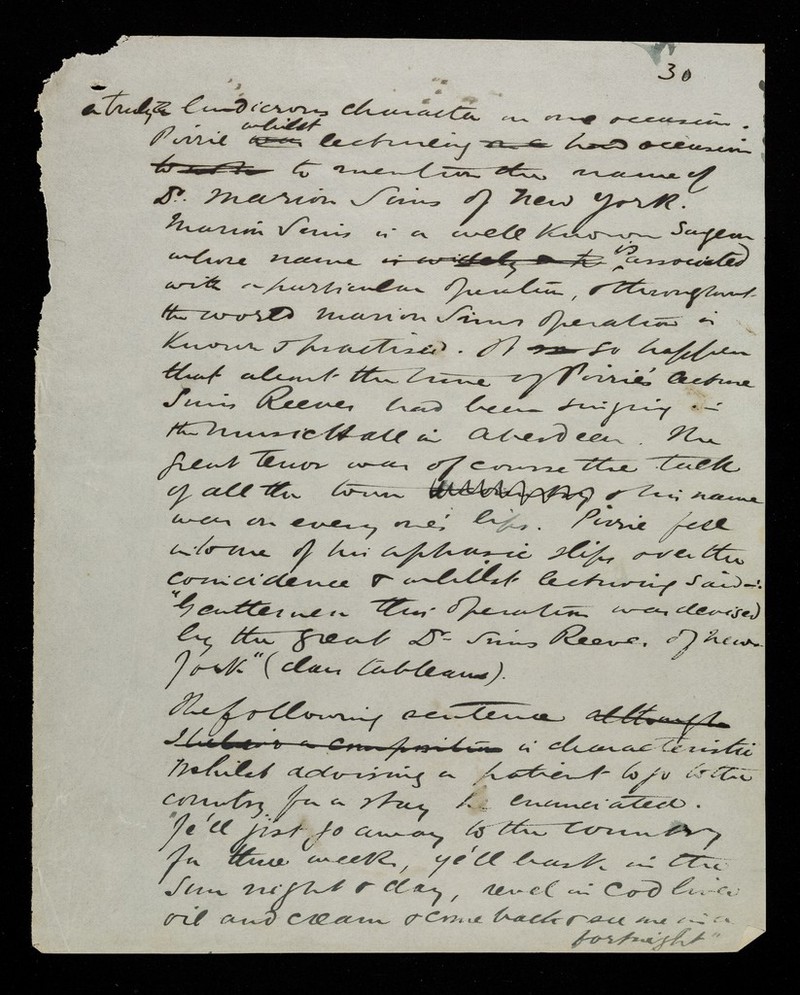 30
a truly a ludicrous character on one occasion.
Pirrie whilst was lecturing and had occasion
to mention the name of
Dr. Marion Sims of New York.
Marion Sims is a well known Surgeon
whose name is widely is associated
with a particular operation, & throughout
the world Marion Sims operation is
known & practised. It so happen
that about the time of Pirrie's lecture
Sims Reeves had been singing in
the Music Hall in Aberdeen. The
great tenor was of course the talk
of all the town & his name
was on every one's lips. Pirrie fell
into one of his aphasic slips over the
coincidence & whilst lecturing said -:
"Gentlemen this operation was devised
by the great Dr Sims Reeves of New
York" (class tableaus).
The following sentence although
composition is characteristic
Whilst advising a patient to go to the
country for a stay he enunciated.
"Ye'll jist go away to the country
for three weeks, ye'll bask in the
sun night & day, revel in Cod liver
oil and cream & come back & see me in a
fortnight"